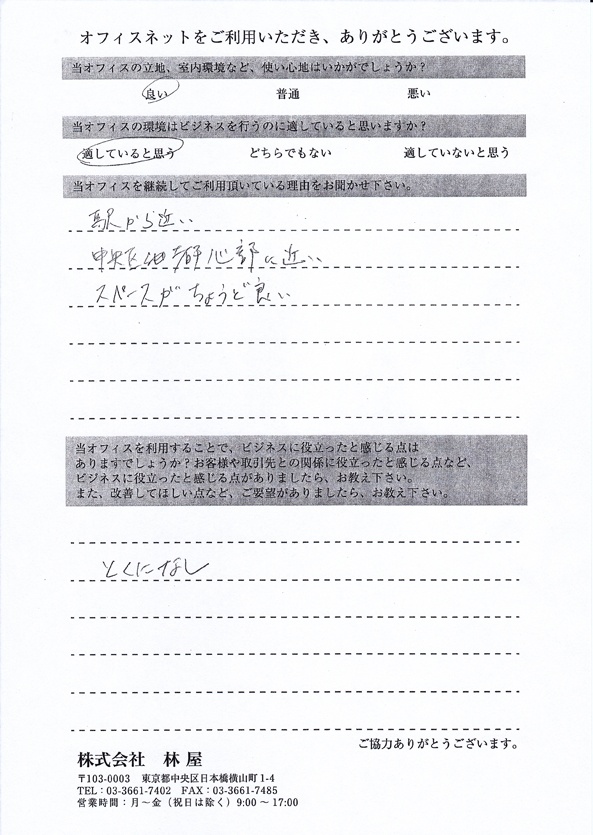 オフィスネットをご利用いただき、ありがとうございます。
当オフィスの立地、室内環境など、使い心地はいかがでしょうか？
良い 普通 悪い
当オフィスの環境はビジネスを行うのに適していると思いますか？
適していると思う どちらでもない 適していないと思う
当オフィスを継続してご利用頂いている理由をお聞かせ下さい。
駅から近い
中央区他都心部に近い
スペースがちょうど良い
当オフィスを利用することで、ビジネスに役立ったと感じる点は
ありますでしょうか？お客様や取引先との関係に役立ったと感じる点など、
ビジネスに役立ったと感じる点がありましたら、お教え下さい。
また、改善してほしい点など、ご要望がありましたら、お教え下さい。
とくになし
ご協力ありがとうございます。
株式会社 林屋
〒103-0003 東京都中央区日本橋横山町1-4
TEL：03-3661-7402 FAX：03-3661-7485
営業時間：月～金（祝日は除く）9:00～17:00